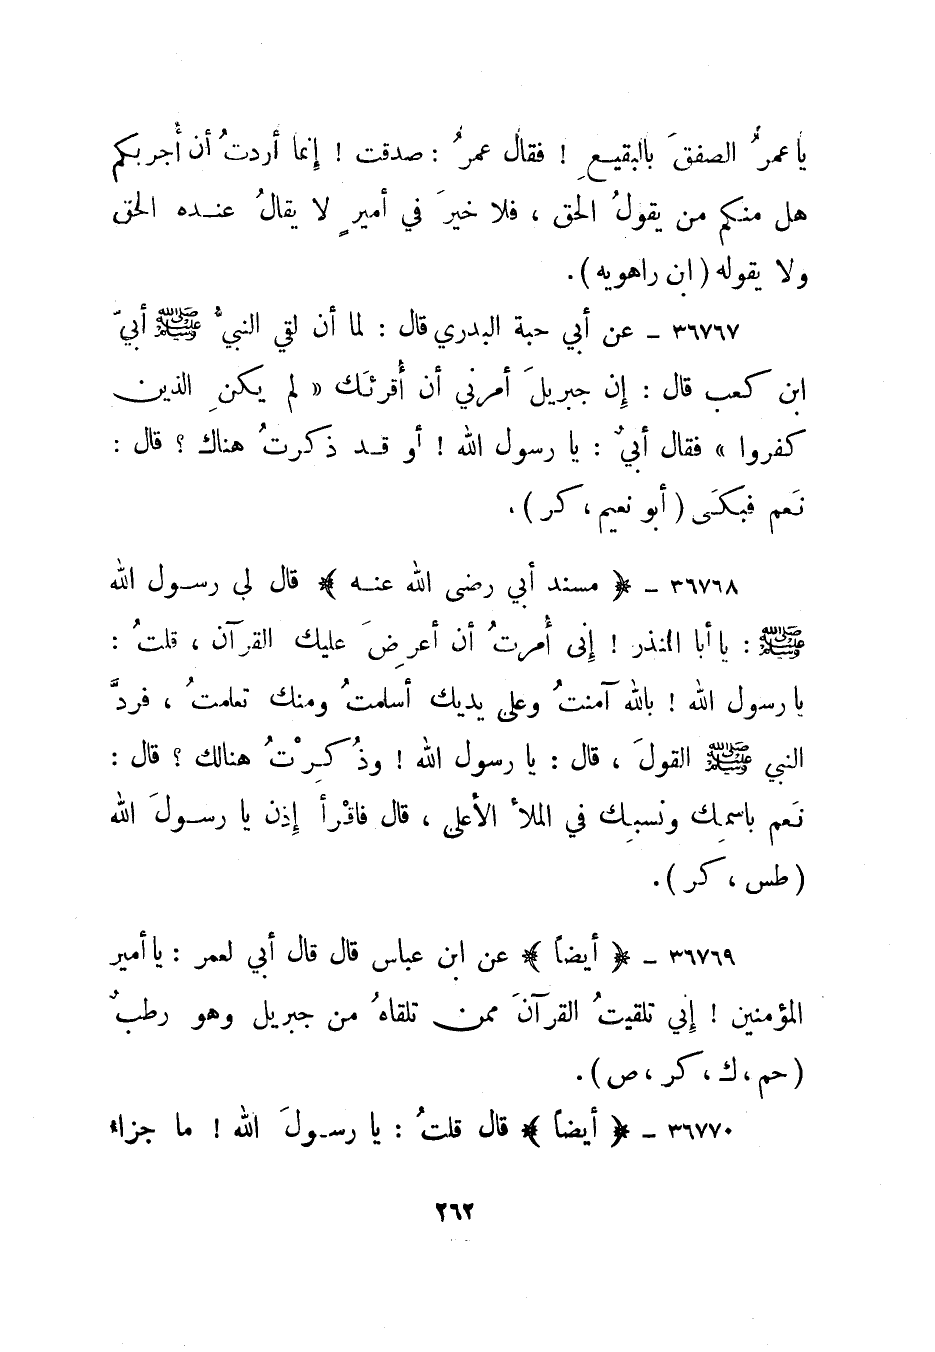 يا عمرُ الصفقَ بالبقيعِ ! فقال عمرُ : صدقت ! إنما أردتُ أن أُجربكم
هل منكم من يقولُ الحق ، فلا خيرَ في أميرٍ لا يقالُ عنده الحق
ولا يقوله (ابن راهويه).
٣٦٧٦٧ ـ عن أبي حبة البدري قال : لما أن لقي النبيُّ ﷺ أبيّ
ابن كعب قال : إن جبريلَ أمرني أن أُقرئَك « لم يكنِ الذين
كفروا » فقال أبيٌ : يا رسول الله ! أو قد ذكرتُ هناك ؟ قال :
نَعم فبكَى (أبو نعيم ، كر ).
٣٦٧٦٨ ـ ﴿ مسند أبي رضى الله عنه ﴾ قال لي رسول الله
ﷺ : يا أبا المنذر ! إنى أُمرتُ أن أعرِضَ عليك القرآن ، قلتُ :
يا رسول الله ! بالله آمنتُ وعلى يديك أسلمتُ ومنك تعلمتُ ، فردَّ
النبي ﷺ القولَ ، قال : يا رسول الله ! وذُكِرْتُ هنالك ؟ قال :
نَعم باسمِك ونسبِك في الملأ الأعلى ، قال فاقْرأ إذن يا رسولَ الله
(طس ، كر ).
٣٦٧٦٩ ـ ﴿ أيضاً ﴾ عن ابن عباس قال قال أبي لعمر : يا أمير
المؤمنين ! إني تلقيتُ القرآنَ ممن تلقاهُ من جبريل وهو رطبٌ
(حم ، ك ، كر ، ص ).
٣٦٧٧٠ ـ ﴿ أيضاً ﴾ قال قلتُ : يا رسولَ الله ! ما جزاء
٢٦٢